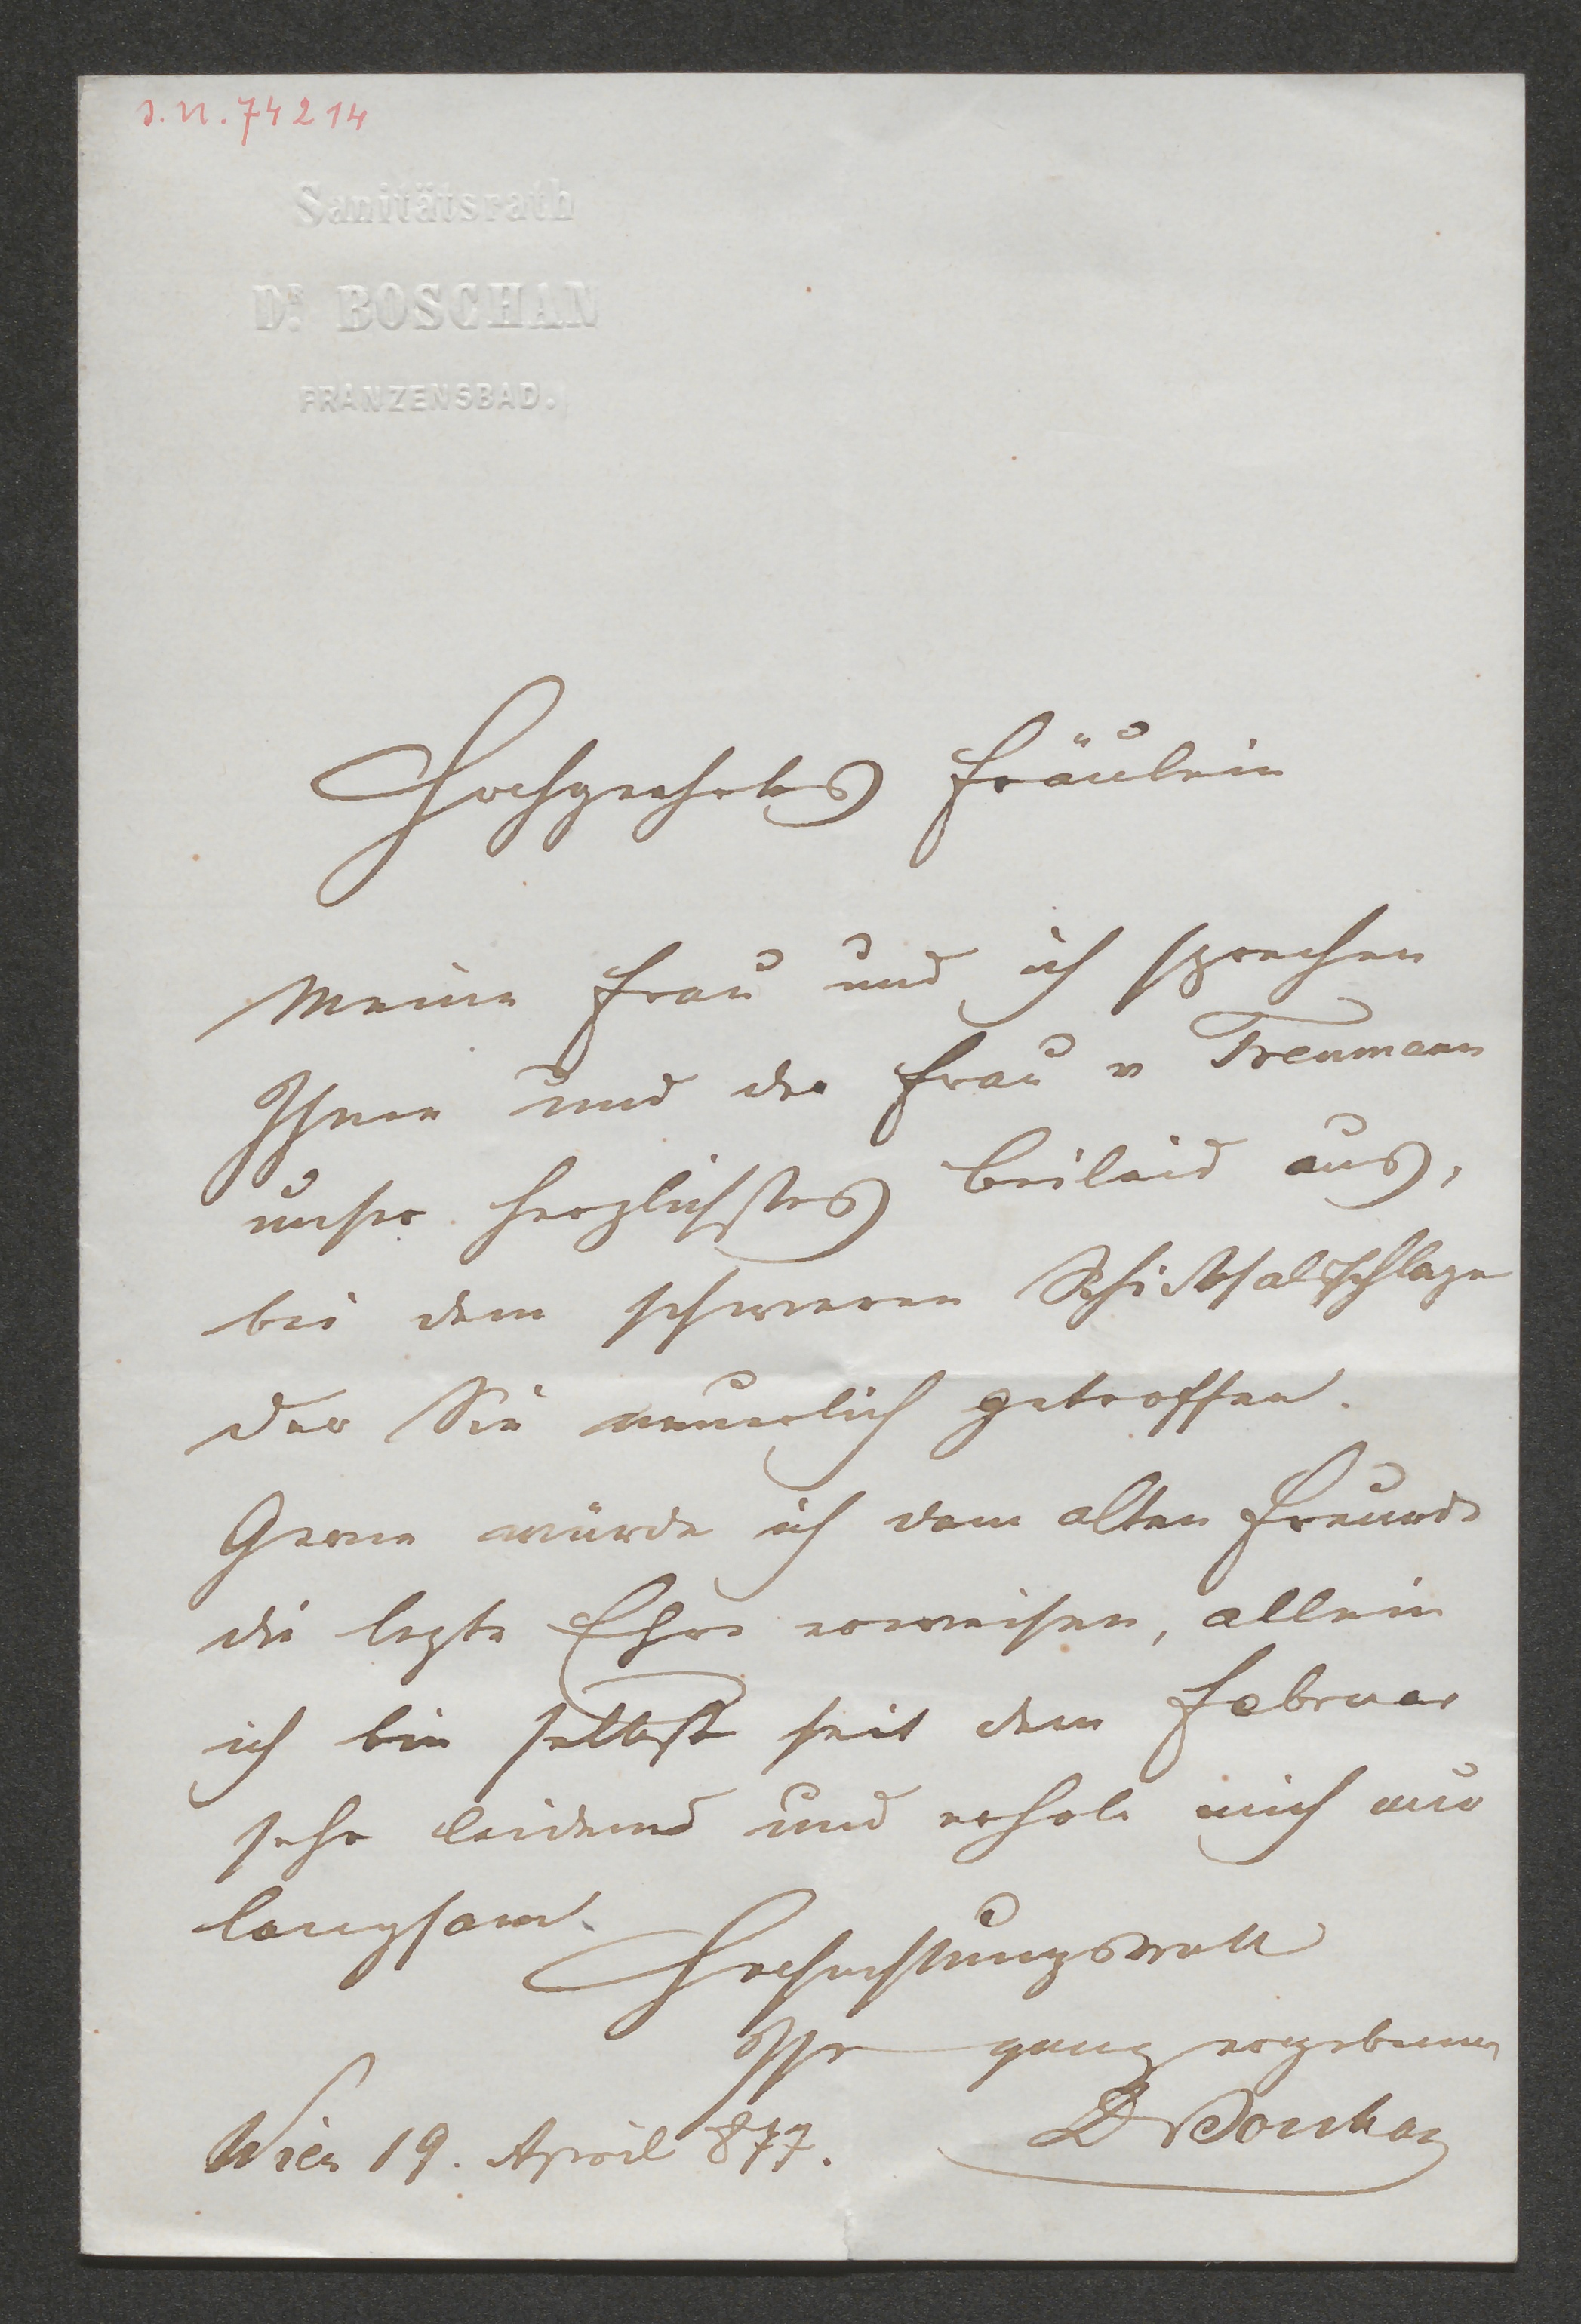 J.N. 74214
Sanitätsrath
Dr. BOSCHAN
FRANZENSBAD.
Hochgeehrtes Fräulein
Meine Frau und ich sprechen
Ihnen und der Frau v Treumann
unser herzlichstes Beileid aus,
bei dem schweren Schicksalsschlage
der Sie neuerlich getroffen.
Gerne würde ich dem alten Freunde
die lezte Ehre erweisen, allein
ich bin selbst seit dem Februar
sehr leidend und erhole mich nur
langsam.
Hochachtungsvoll
Ihr ganz ergebener
Dr Boschan
Wien 19. April 877.